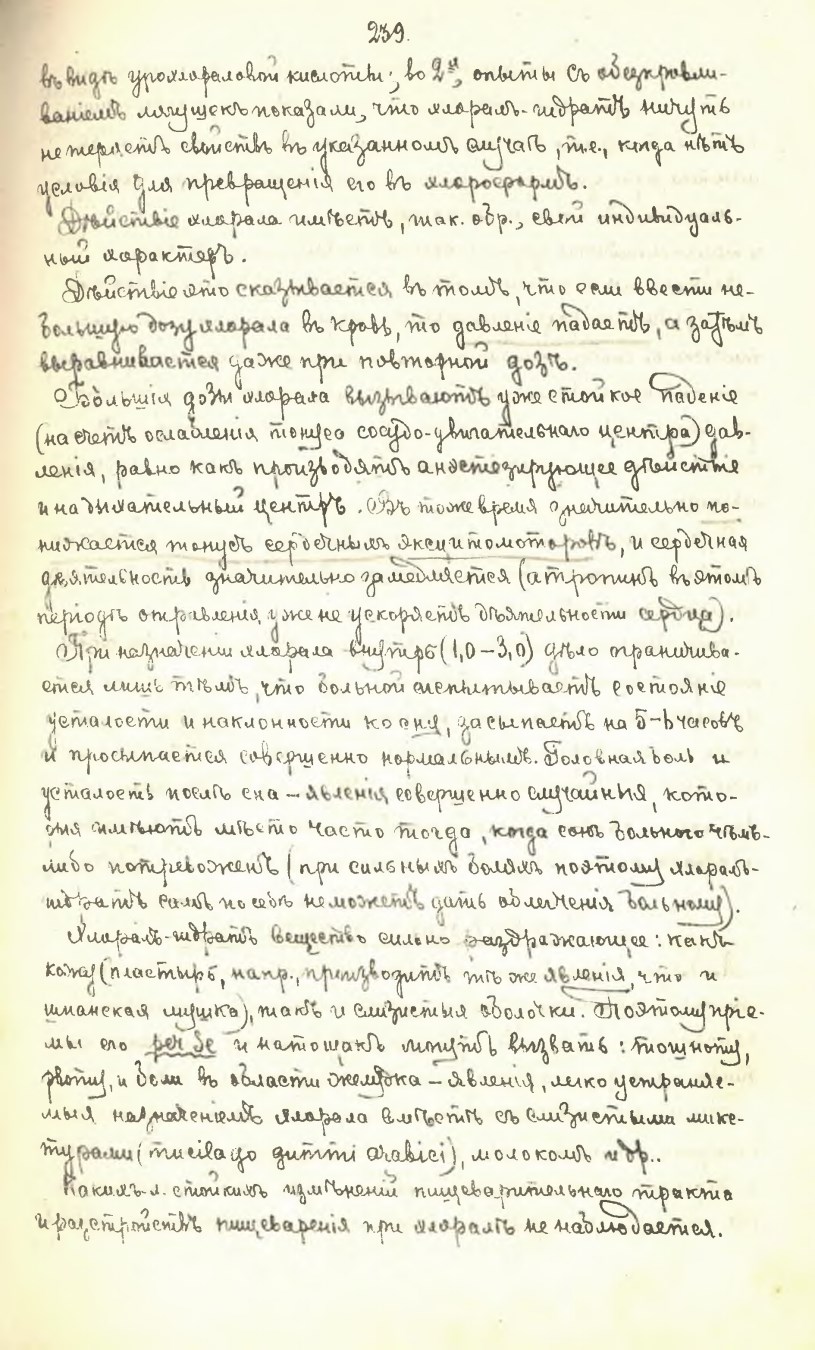 239.
въ видѣ урохлораловой кислоты; во 2х, опыты съ обезкровли-
ваніемъ лягушекъ показали, что хлоралъ-гидратъ ничуть
не теряетъ свойствъ въ указанномъ случаѣ, т.е., когда нѣтъ
условія для превращенія его въ хлороформъ.
Дѣйствіе хлорала имѣетъ, так. обр., свой индивидуаль-
ный характеръ.
Дѣйствіе это сказывается въ томъ, что если ввести не-
большую дозу хлорала въ кровь, то давленіе падаетъ, а затѣмъ
выравнивается даже при повторной дозѣ.
Большія дозы хлорала вызываютъ уже стойкое паденіе
(на счетъ ослабленія тонуса сосудо-двигательнаго центра) дав-
ленія, равно какъ производятъ анэстезирующее дѣйствіе
и на дыхательный центръ. Въ тоже время значительно по-
нижается тонусъ сердечныхъ эксцитомоторовъ, и сердечная
дѣятельность значительно замедляется (атропинъ въ этомъ
періодѣ отравленія уже не ускоряетъ дѣятельности сердца).
При назначеніи хлорала внутрь (1,0-3,0) дѣло ограничива-
ется лишь тѣмъ, что больной испытываетъ состояніе
усталости и наклонности ко сну, засыпаетъ на 5-6 часовъ
и просыпается совершенно нормальнымъ. Головная боль и
усталость послѣ сна - явленія совершенно случайныя, кото-
рыя имѣютъ мѣсто часто тогда, когда сонъ больного чѣмъ-
либо потревоженъ (при сильныхъ боляхъ поэтому хлоралъ-
гидратъ самъ по себѣ не можетъ дать облегченія больному).
Хлоралъ-гидратъ вещество сильно раздражающее: какъ
кожу (пластырь, напр., производитъ тѣ же явленія, что и
шпанская мушка), такъ и слизистыя оболочки. Поэтому пріе-
мы его per se и натощакъ могутъ вызвать: тошноту,
рвоту, и боли въ области желудка - явленія, легко устраняе-
мыя назначеніемъ хлорала вмѣстѣ съ слизистыми микс-
турами (mucilago gummi arabici), молокомъ и др..
Какихъ-л. стойкихъ измѣненій пищеварительнаго тракта
и разстройствъ пищеваренія при хлоралѣ не наблюдается.